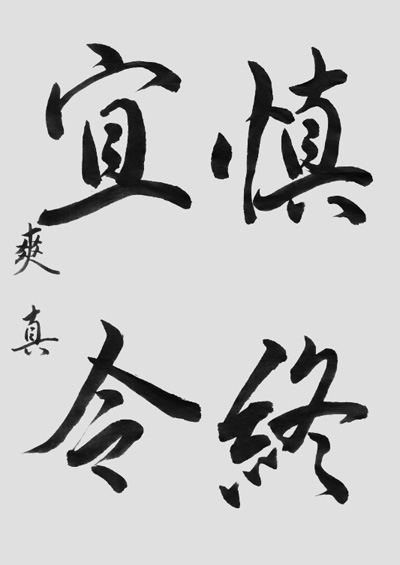 慎終
宜令
爽真